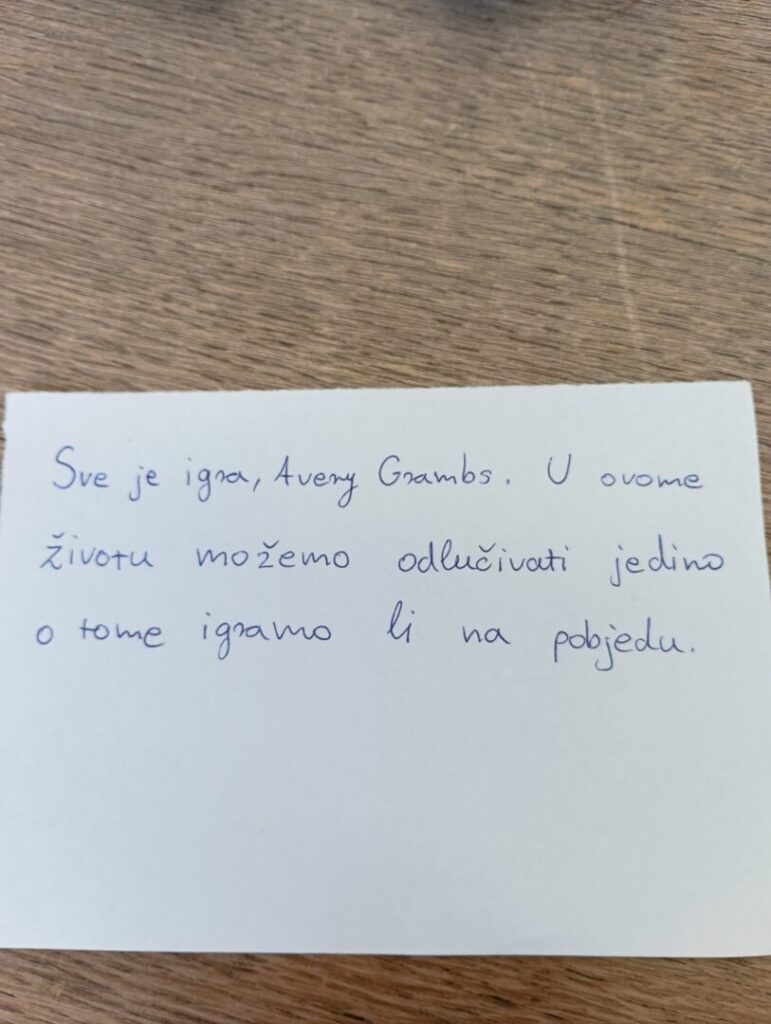 Sve je igra, Avery Grambs. U ovome
životu možemo odlučivati jedino
o tome igramo li na pobjedu.